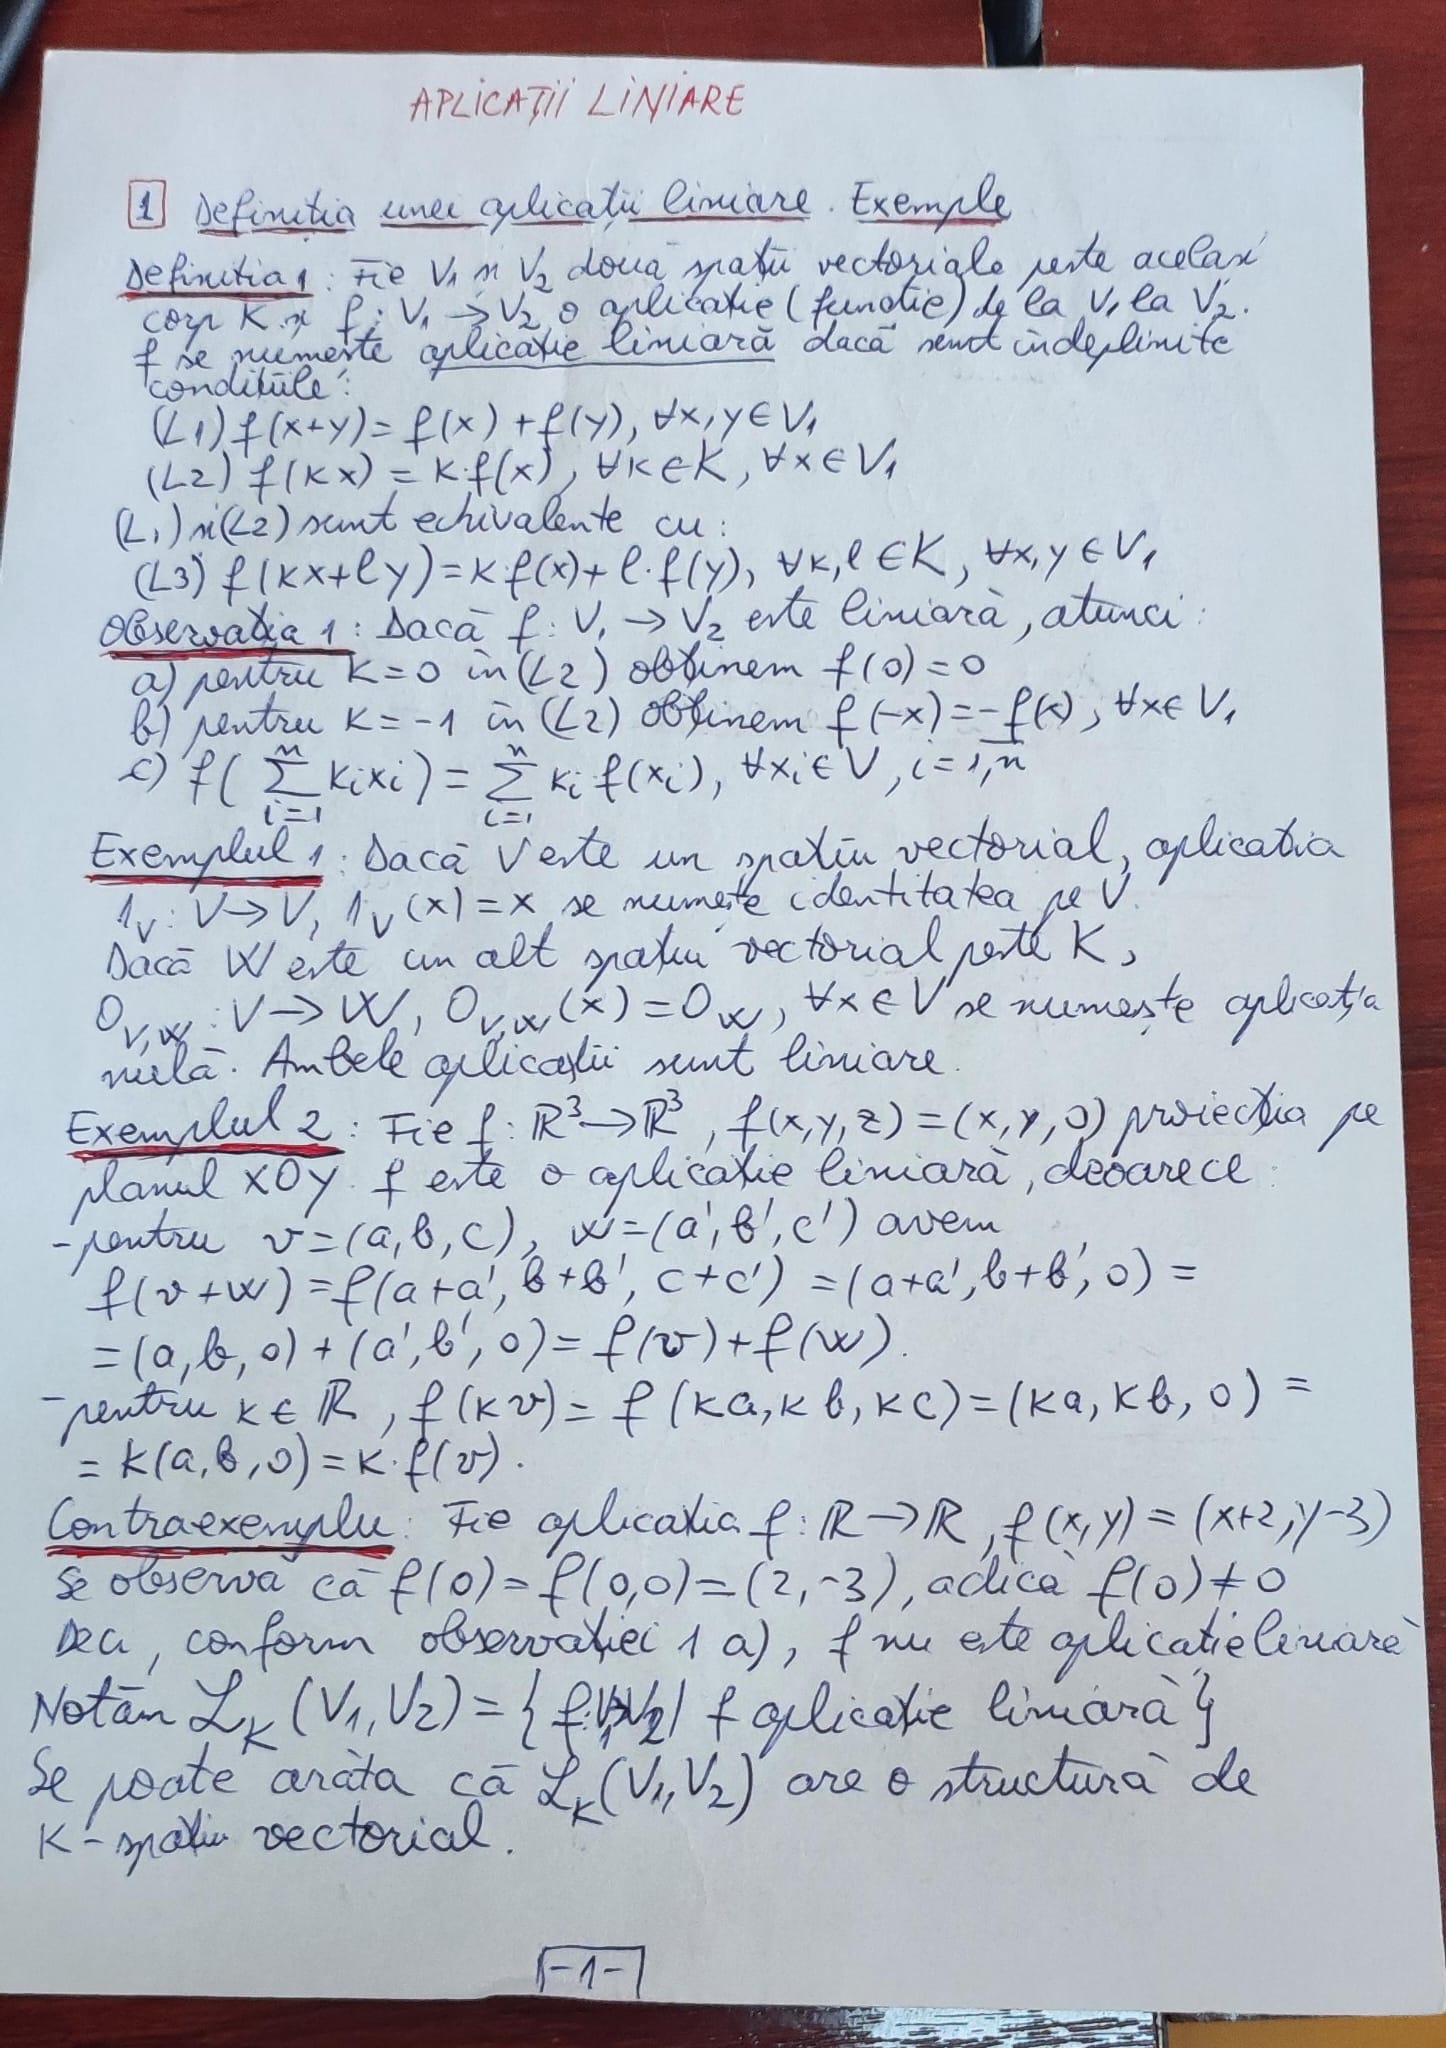 APLICAȚII LINIARE
1 Definiția unei aplicații liniare. Exemple
Definiția 1: Fie V₁ și V₂ două spații vectoriale peste același
corp K și f: V₁ → V₂ o aplicație (funcție) de la V₁ la V₂.
f se numește aplicație liniară dacă sunt îndeplinite
condițiile:
(L1) f(x+y) = f(x) + f(y), ∀x, y ∈ V₁
(L2) f(kx) = k·f(x), ∀k ∈ K, ∀x ∈ V₁
(L1) și (L2) sunt echivalente cu:
(L3) f(kx+ly) = k·f(x) + l·f(y), ∀k, l ∈ K, ∀x, y ∈ V₁
Observația 1: Dacă f: V₁ → V₂ este liniară, atunci:
a) pentru k=0 în (L2) obținem f(0) = 0
b) pentru k=-1 în (L2) obținem f(-x) = -f(x), ∀x ∈ V₁
c) f(∑ᵢ₌₁ⁿ kᵢxᵢ) = ∑ᵢ₌₁ⁿ kᵢ f(xᵢ), ∀xᵢ ∈ V, i = 1,n̅
Exemplul 1: Dacă V este un spațiu vectorial, aplicația
1_V: V → V, 1_V(x) = x se numește identitatea pe V.
Dacă W este un alt spațiu vectorial peste K,
0_{V,W}: V → W, 0_{V,W}(x) = 0_W, ∀x ∈ V se numește aplicația
nulă. Ambele aplicații sunt liniare.
Exemplul 2: Fie f: ℝ³ → ℝ³, f(x,y,z) = (x,y,0) proiecția pe
planul xOy. f este o aplicație liniară, deoarece:
- pentru v = (a,b,c), w = (a',b',c') avem
f(v+w) = f(a+a', b+b', c+c') = (a+a', b+b', 0) =
= (a,b,0) + (a',b',0) = f(v) + f(w).
- pentru k ∈ ℝ, f(kv) = f(ka,kb,kc) = (ka,kb,0) =
= k(a,b,0) = k·f(v).
Contraexemplu: Fie aplicația f: ℝ → ℝ, f(x,y) = (x+2, y-3)
Se observă că f(0) = f(0,0) = (2,-3), adică f(0) ≠ 0
Deci, conform observației 1 a), f nu este aplicație liniară
Notăm ℒ_K(V₁,V₂) = {f: V₁→V₂ | f aplicație liniară}
Se poate arăta că ℒ_K(V₁,V₂) are o structură de
K-spațiu vectorial.
-1-